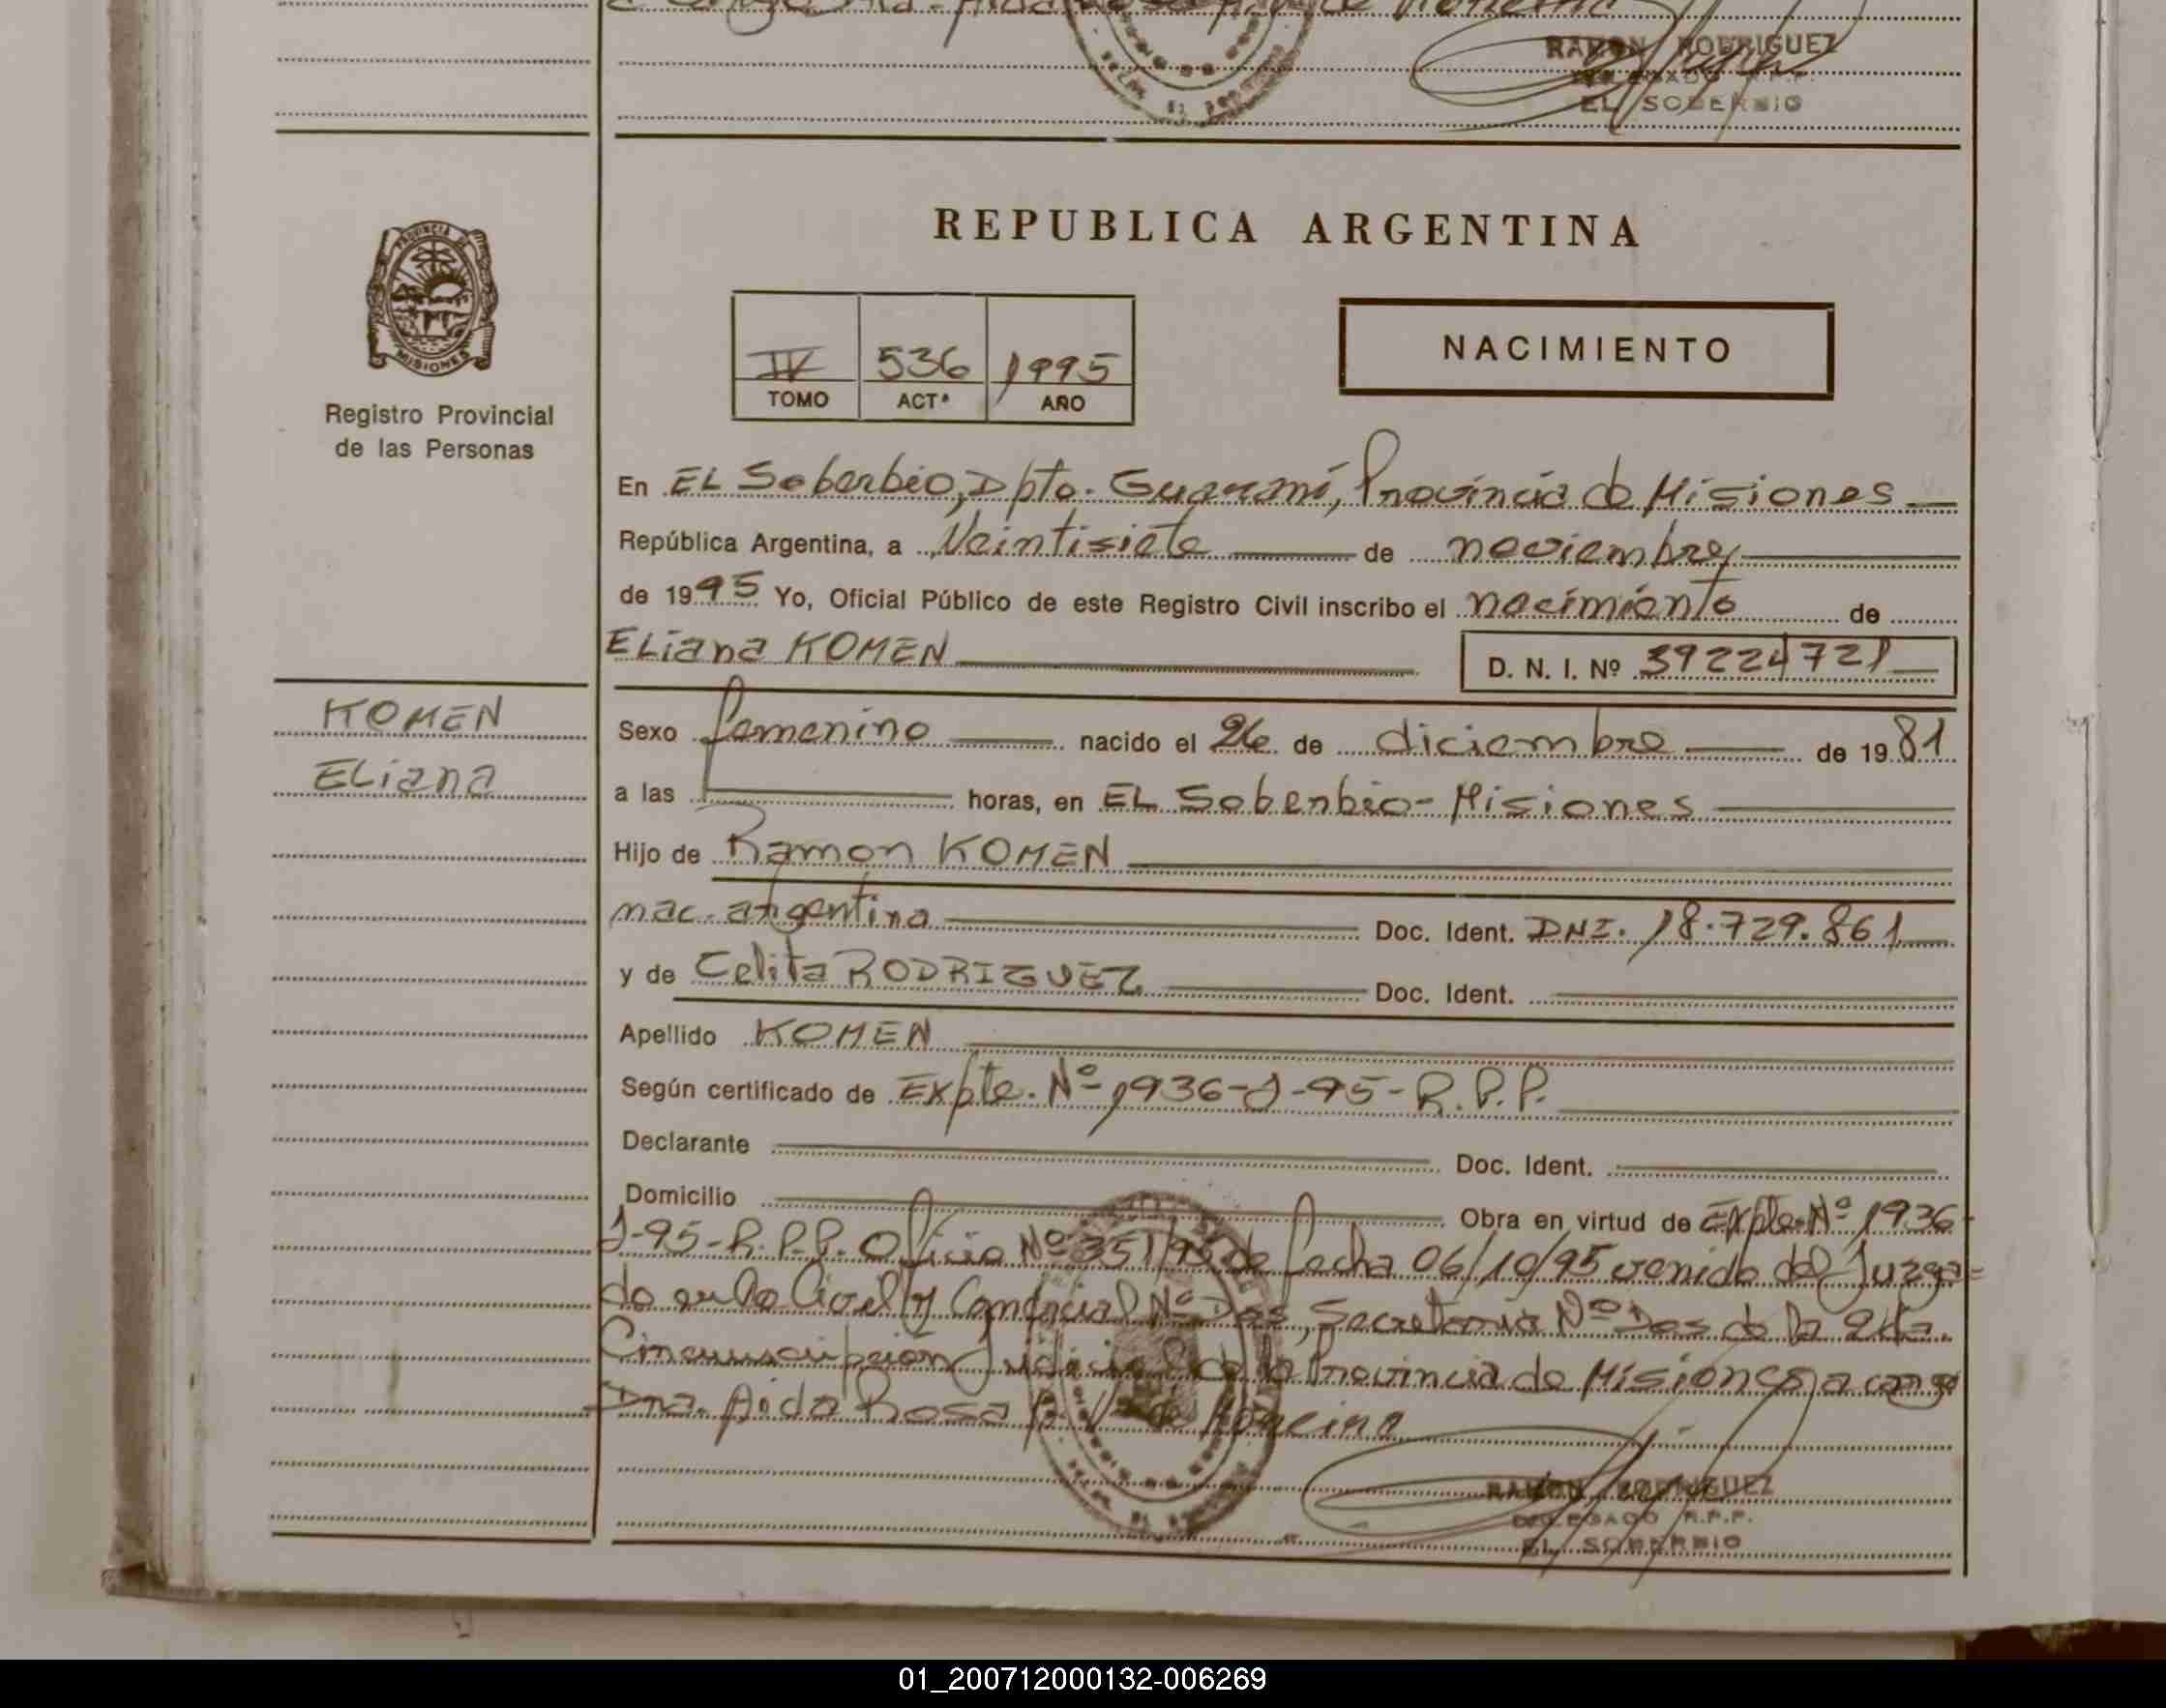 RAMON RODRIGUEZ
DELEGADO R.P.P.
EL SOBERBIO
PROVINCIA DE
MISIONES
Registro Provincial
de las Personas
REPUBLICA ARGENTINA
IV 536 1995
TOMO ACTª AÑO
NACIMIENTO
En EL Soberbio, Dpto. Guaraní, Provincia de Misiones
República Argentina, a Veintisiete de noviembre
de 1995 Yo, Oficial Público de este Registro Civil inscribo el nacimiento de
ELiana KOMEN D. N. I. Nº 39224721
KOMEN
ELiana
Sexo femenino nacido el 26 de diciembre de 1981
a las horas, en EL Soberbio - Misiones
Hijo de Ramon KOMEN
nac. argentina Doc. Ident. DNI. 18.729.861
y de Celita RODRIGUEZ Doc. Ident.
Apellido KOMEN
Según certificado de Expte. Nº 1936-J-95-R.P.P.
Declarante Doc. Ident.
Domicilio Obra en virtud de Expte. Nº 1936-
J-95-R.P.P. Oficio Nº 351/95 de fecha 06/10/95 venido del Juzga=
do en lo Civil y Comercial Nº Dos, Secretaria Nº Dos de la 2da.
Circunscripción Judicial de la Provincia de Misiones, a cargo
Dra. Aida Rosa
RAMON RODRIGUEZ
DELEGADO R.P.P.
EL SOBERBIO
01_200712000132-006269